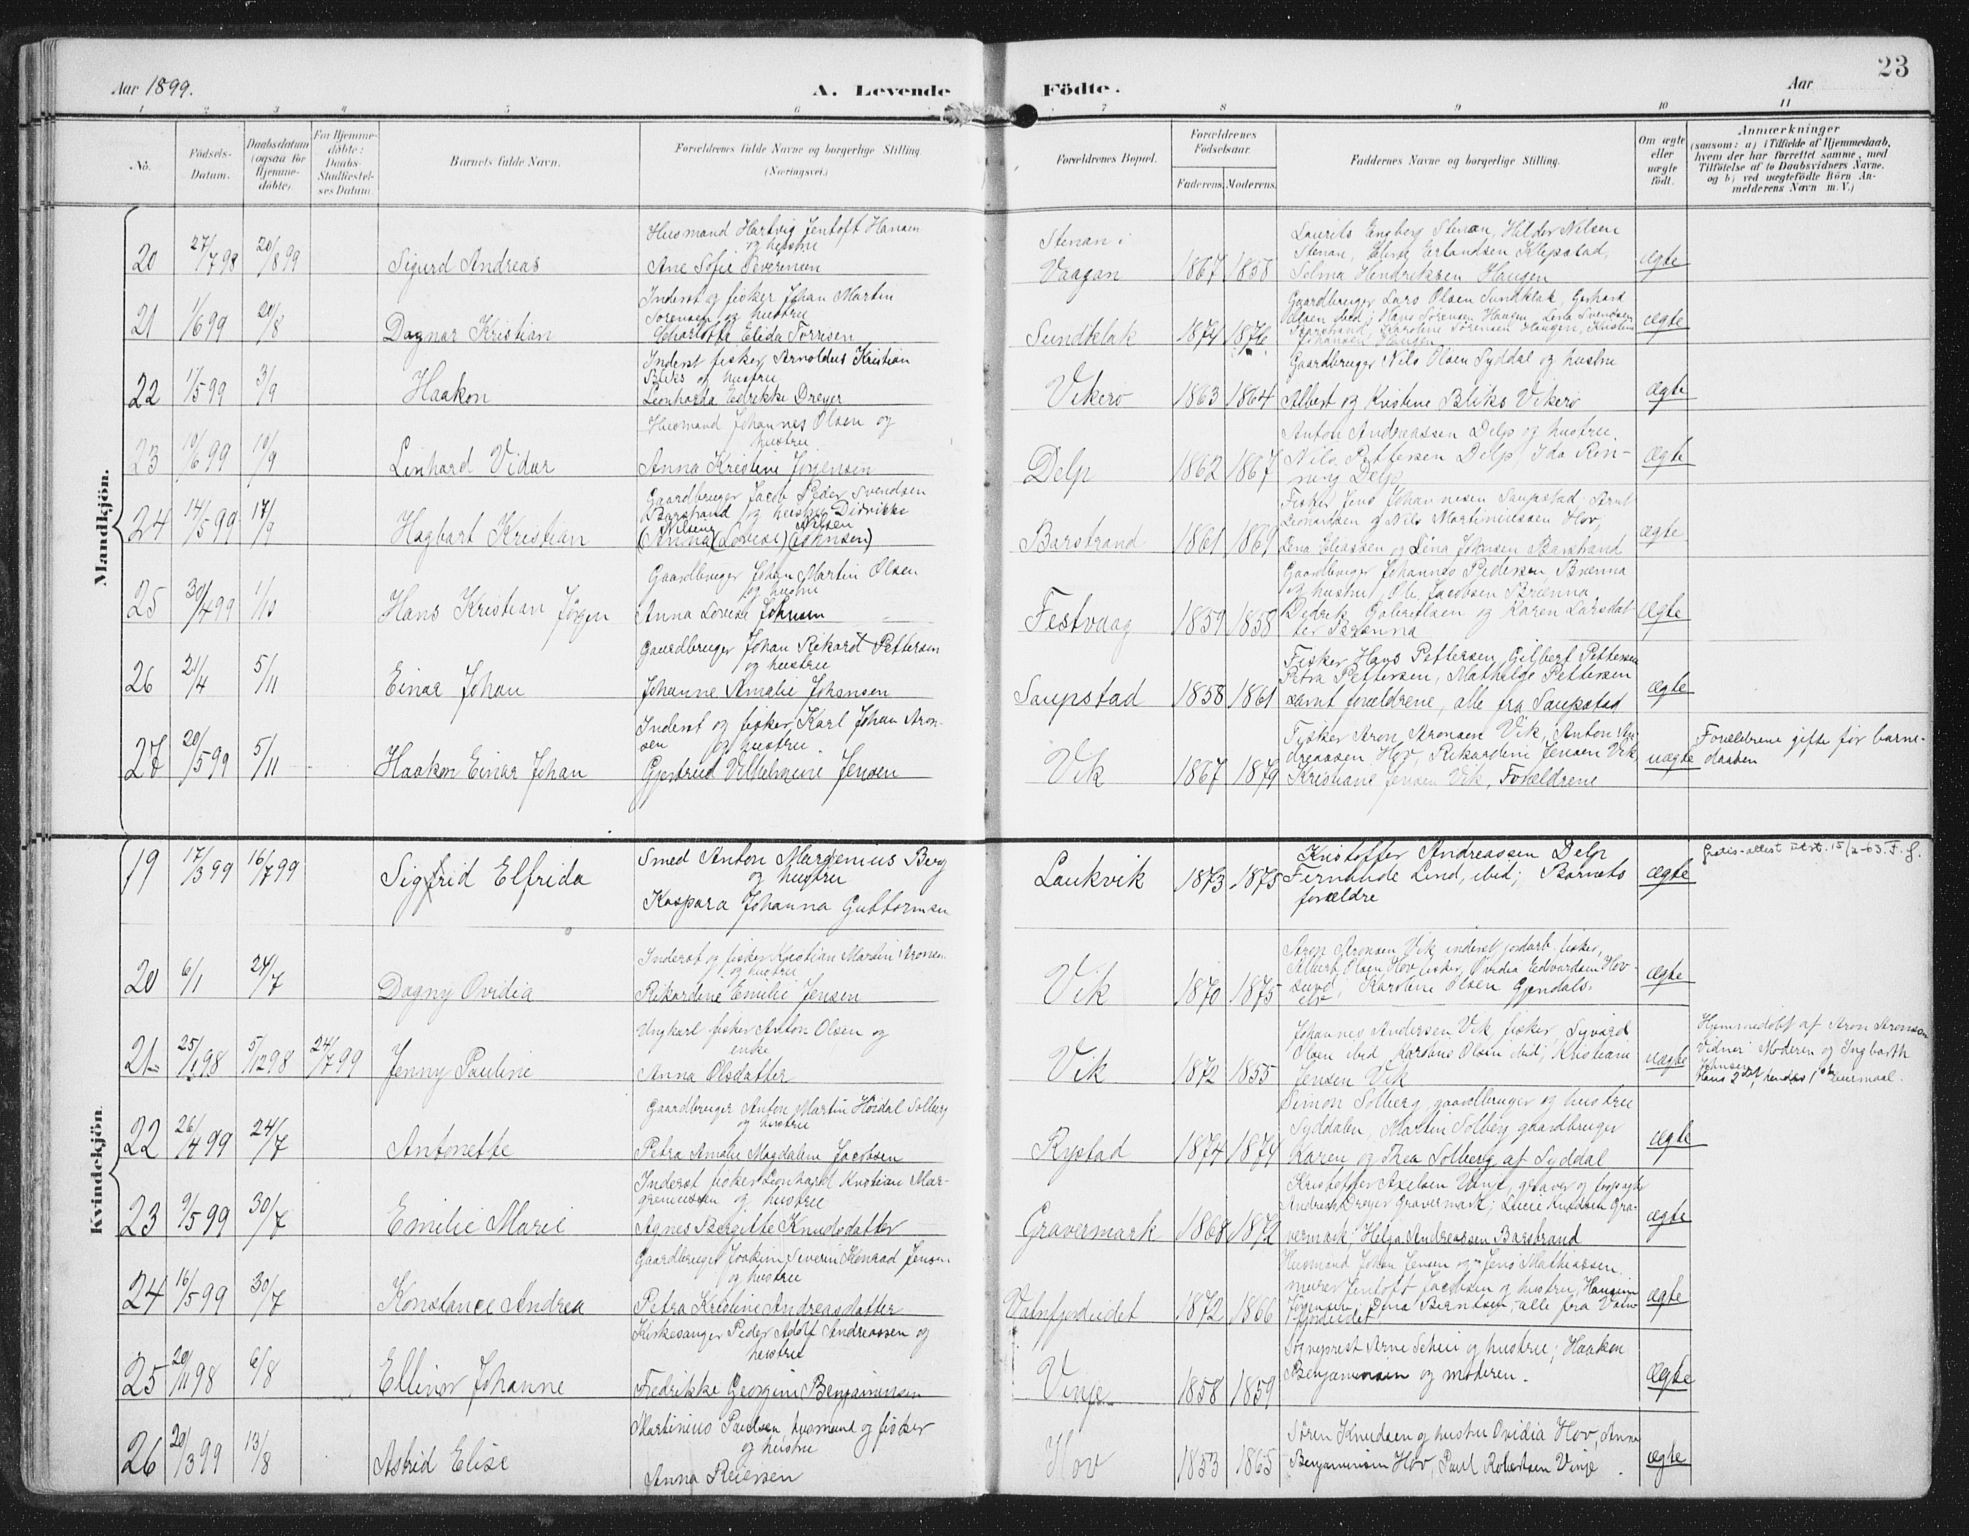 Aar 1899.
A. Levende Födte.
Aar
23
1 2 3 4 5 6 7 8 9 10 11
No.
Födsels-Datum.
Daabsdatum (ogsaa for Hjemme-döbte).
For Hjemme-döbte: Daabs-Stadfæstel-ses Datum.
Barnets fulde Navn.
Forældrenes fulde Navne og borgerlige Stilling. (Næringsvei.)
Forældrenes Bopæl.
Forældrenes Födselsaar.
Faderens. Moderens.
Faddernes Navne og borgerlige Stilling.
Om ægte eller uægte födt.
Anmærkninger
(saasom: a) i Tilfælde af Hjemmedaab, hvem der har forrettet samme, med Tilföielse af to Daabsvidners Navne. og b) ved uægtefödte Börn An-melderens Navn m. V.)
Mandkjön.
20 27/7 98 20/8 99 Sigurd Andreas
Husmand Hartvig Jentoft Hansen
og hustru
Ane Sofie Severinsen
Stenan i
Vaagan 1867 1858
Laurits Engberg Stenan, Hilder Nilsen
Stenan, Eline Erlandsen Klepstad,
Selma Hendriksen Haugen
ægte
21 1/6 99 20/8 Dagnar Kristian
Inderst og fisker Johan Martin
Sörensen og hustru
Charlotte Elida Torrisen
Sundklak 1874 1876
Gaardbruger Lars Olsen Sundklak, Gerhard
Olsen ibid; Hans Sörensen Haugen, Lena Svendsen
Barstrand, Karoline Sörensen Haugen, Kristine
Johansen Haugen
ægte
22 17/5 99 3/9 Haakon
Inderst fisker Arnoldus Kristian
Bliks og hustru
Leonharda Edrikke Dreyer
Vikerö 1863 1864
Gaardbruger Nils Olsen Syddal og hustru
Albert og Kristine Bliks Vikerö
ægte
23 10/6 99 10/9 Linhard Vidar
Husmand Johannes Olsen og
hustru
Anna Kristine Jörgensen
Delp 1862 1867
Anton Andreassen Delp og hustru
Nils Pettersen Delp, Ida Rin-
Delp
ægte
24 14/5 99 17/9 Hagbart Kristian
Gaardbruger Jacob Peder Svendsen
Barstrand og hustru Didrikke
Nilsine Nilsen
(Anna (Lovise) Johnsen)
Barstrand 1861 1869
Fisker Jens Johannesen Saupstad. Arnt
Leonardsen og Nils Martinussen Hov,
Lena Eliassen og Lina Johnsen Barstrand
ægte
25 30/4 99 1/10 Hans Kristian Jörgen
Gaardbruger Johan Martin Olsen
og hustru
Anna Lovise Johnsen
Festvaag 1859 1858
Gaardbruger Johannes Pedersen, Brenna
og hustru, Ole Jacobsen Brenna
Dedrik og Karen Larsdat-
ter Brenna
ægte
26 21/4 5/11 Einar Johan
Gaardbruger Johan Rikard Pettersen
og hustru
Johanne Amalie Johansen
Saupstad 1858 1861
Fisker Hans Pettersen, Gilbert Pettersen
Petra Pettersen, Mathilde Pettersen
samt forældrene, alle fra Saupstad
ægte
27 20/5 99 5/11 Haakon Einar Johan
Inderst og fisker Karl Johan Aron-
sen og hustru
Gjertrud Vilhelmine Jensen
Vik 1867 1879
Fisker Aron Aronsen Vik, Anton An-
dreassen, Hov, Rikardine Jensen Vik
Kristiane Jensen Vik, Forældrene
uægte
Forældrene gifte för barne-
daaben
Kvindekjön.
19 17/3 99 16/7 99 Sigfrid Elfrida
Smed Anton Margenius Berg
og hustru
Kaspara Johanna Guttormsen
Laukvik 1873 1875
Kristoffer Andreassen Delp
Fernande Lind, ibid; Barnets
forældre
ægte
Gratis-attest utst. 15/2-63. F. G.
20 6/1 24/7 Dagny Ovidia
Inderst og fisker Kristian Martin Aronsen
og hustru
Rikardine Emilie Jensen
Vik 1870 1875
Aron Aronsen Vik inderst jordarb. fisker,
Albert Olsen Hov fisker, Ovidia Edvardsen Hov-
sund; Karoline Olsen Gjendals-
ægte
21 25/1 98 5/12 98 24/7 99 Jenny Pauline
Ungkarl fisker Anton Olsen og
enke
Anna Olsdatter
Vik 1872 1855
Johannes Andersen Vik fisker, Syvard
Olsen ibid, Karolius Olsen ibid; Kristiane
Jensen Vik
uægte
Hjemmedöbt af Aron Aronsen
Vidner: Moderen og Ingbarth
Johnsen
Hans 2det, hendes 1ste leiermaal.
22 26/4 99 24/7 Antonette
Gaardbruger Anton Martin Hördal Solberg
og hustru
Petra Amalie Magdalene Jacobsen
Rystad 1874 1874
Simon Solberg gaardbruger og hustru
Syddalen, Martin Solberg gaardbruger
Karen og Thea Solberg, af Syddal
ægte
23 9/5 99 30/7 Emilie Marie
Inderst fisker Leonhard Kristian Mar-
greniussen og hustru
Agnes Bergitte Knudsdatter
Gravermark 1868 1872
Kristoffer Axelsen Vinje, graver og
Andreas Dreyer Gravermark; Lucie Knudsen Gra-
vermark Helga Andreassen Barstrand
ægte
24 16/5 99 30/7 Konstance Andrea
Gaardbruger Joakim Severin Konrad Jensen
og hustru
Petra Kristine Andreasdatter
Vatnfjordeidet 1872 1866
Husmand Johan Jensen og Jens Mathiassen
murer Jentoft Jacobsen og hustru,
Jörgensen; Dina Berntsen, alle fra Vatn-
fjordeidet
ægte
25 20/11 98 6/8 Ellinor Johanne
Kirkesanger Peder Adolf Andreassen og
hustru
Fredrikke Georgine Benjaminsen
Vinje 1858 1859
Sogneprest Arne Scheie og hustru; Haakon
Benjaminsen og moderen.
ægte
26 20/3 99 13/8 Astrid Elise
Martinius Paulsen, husmand og fisker
og hustru
Anna Reiersen
Hov 1853 1865
Sören Knudsen og hustru Ovidia Hov, Anna
Benjaminsen Hov, Paul Robertsen Vinje.
ægte